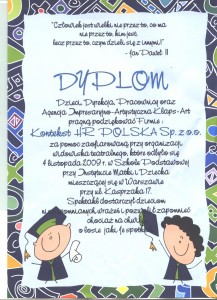 "Człowiek jest wielki nie przez to, co ma
nie przez to, kim jest,
lecz przez to, czym dzieli się z innymi!"
- Jan Paweł II
DYPLOM
Dzieci, Dyrekcja, Pracownicy oraz
Agencja Impresaryjno-Artystyczna Klaps-Art
pragną podziękować Firmie:
Kontekst HR POLSKA Sp. z o.o.
za pomoc zaofiarowaną przy organizacji
widowiska teatralnego, które odbyło się
4 listopada 2009 r. w Szkole Podstawowej
przy Instytucie Matki i Dziecka
mieszczącej się w Warszawie
przy ul. Kasprzaka 17.
Spektakl dostarczył dzieciom
niezapomnianych wrażeń i pozwolił zapomnieć
chociaż na chwilę
o losie jaki je spotkał